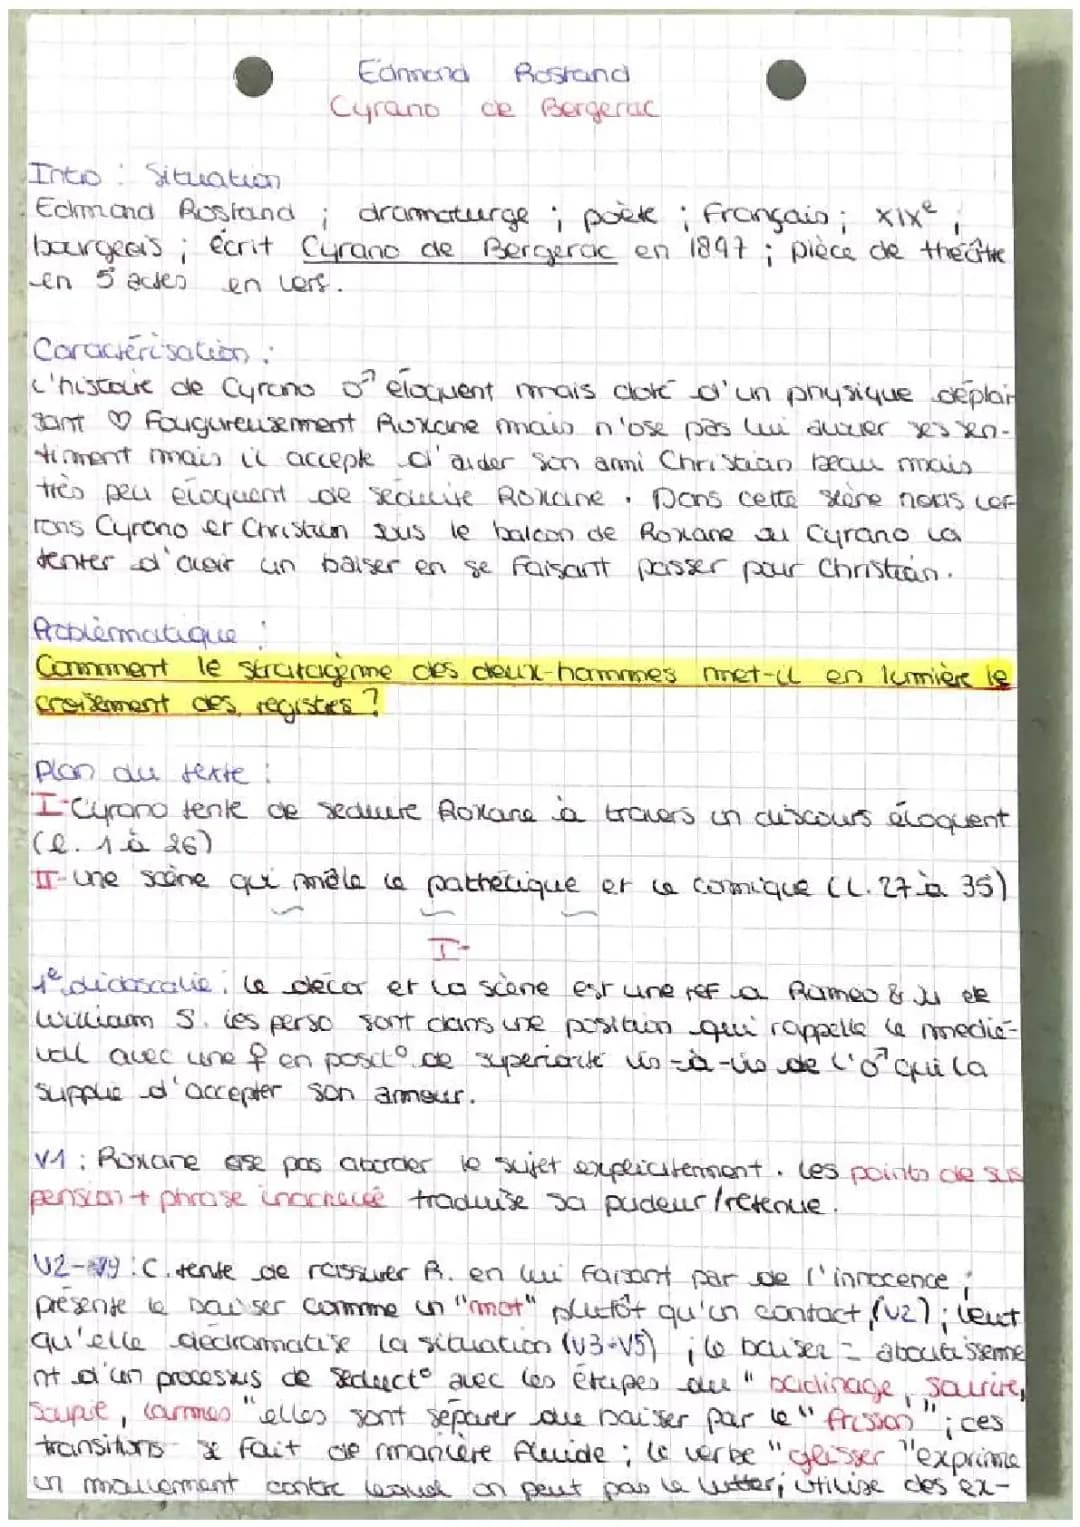 Edmond Rostand
Cyrano de Bergerac
Intro : Situation
Edmond Rostand ; dramaturge ; poète ; Français ; XIXe ;
bourgeois ; écrit Cyrano de Bergerac en 1897 ; pièce de théâtre
en 5 actes en vers.
Caractérisation :
L'histoire de Cyrano ♂ éloquent mais doté d'un physique déplai-
sant ♡ Fougureusement Roxane mais n'ose pas lui avouer ses sen-
timent mais il accepte d'aider son ami Christian beau mais
très peu éloquent de séduire Roxane. Dans cette scène nous ver-
rons Cyrano et Christian sous le balcon de Roxane où Cyrano va
tenter d'avoir un baiser en se faisant passer pour Christian.
Problèmatique :
Comment le stratagème des deux-hommes met-il en lumière le
croisement des registres ?
Plan du texte :
I-Cyrano tente de séduire Roxane à travers un discours éloquent
(l. 1 à 26)
II-Une scène qui mêle le pathétique et le comique (L. 27 à 35)
I-
1e didascalie : Le décor et la scène est une réf a Roméo & Ju de
William S. Les perso sont dans une position qui rappelle le médié-
val avec une ♀ en posit° de superiorité vis-à-vis de l'♂ qui la
supplie d'accepter son amour.
V1 : Roxane ose pas aborder le sujet explicitement. Les points de sus
pension + phrase inachevée traduise sa pudeur/retenue.
V2- : C. tente de rassurer R. en lui faisant par de l'innocence ;
présente le baiser comme un "mot" plutôt qu'un contact (V2) ; veut
qu'elle dédramatise la situation (V3-V5) ; le baiser = aboutisseme
nt d'un processus de séduct° avec les étapes du "badinage, sourire,
soupir, larmes" elles sont séparer du baiser par le "frisson" ; ces
transitions se fait de manière fluide ; le verbe "glisser" exprime
un mouvement contre lequel on peut pas la lutter ; utilise des ex-